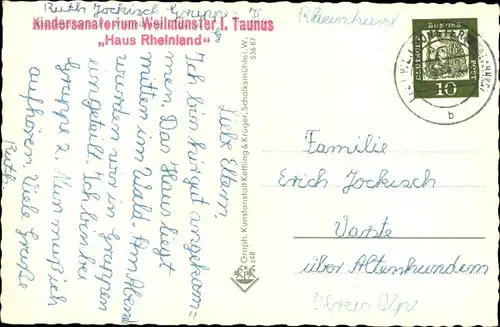 Ruth Jockisch Gruppe
Kindersanatorium Weilmünster i. Taunus
„Haus Rheinland“
Rheinland
Liebe Eltern,
Ich bin hir gut angekom=
men. Das Haus liegt
mitten im Wald. Am Abend
wurden wir in Gruppen
eingeteilt. Ich bin bei
Gruppe 2. Nun muß ich
aufhören. Viele Grüße
Ruth.
Graph. Kunstanstalt Kettling & Krüger, Schalksmühle i. W.
536 87
K&K
248
DEUTSCHE
BUNDES
POST
10
b
Familie
Erich Jockisch
Varste
über Altenhundem
Kreis Olpe